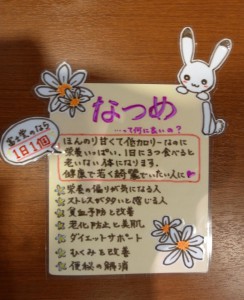 なつめ
って何に良いの？
富士宮のなら
1日1個
ほんのり甘くて低カロリーなのに
栄養いっぱい。1日に3つ食べると
老いない体になります。
健康で若く綺麗でいたい人に
栄養の偏りが気になる人
ストレスが多いと感じる人
貧血予防と改善
老化防止と美肌
ダイエットサポート
むくみを改善
便秘の解消